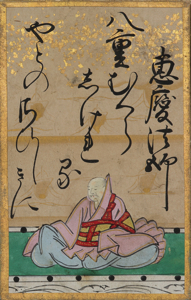 恵慶法師
八重むくら
しけれ
る
やとの
さひしきに